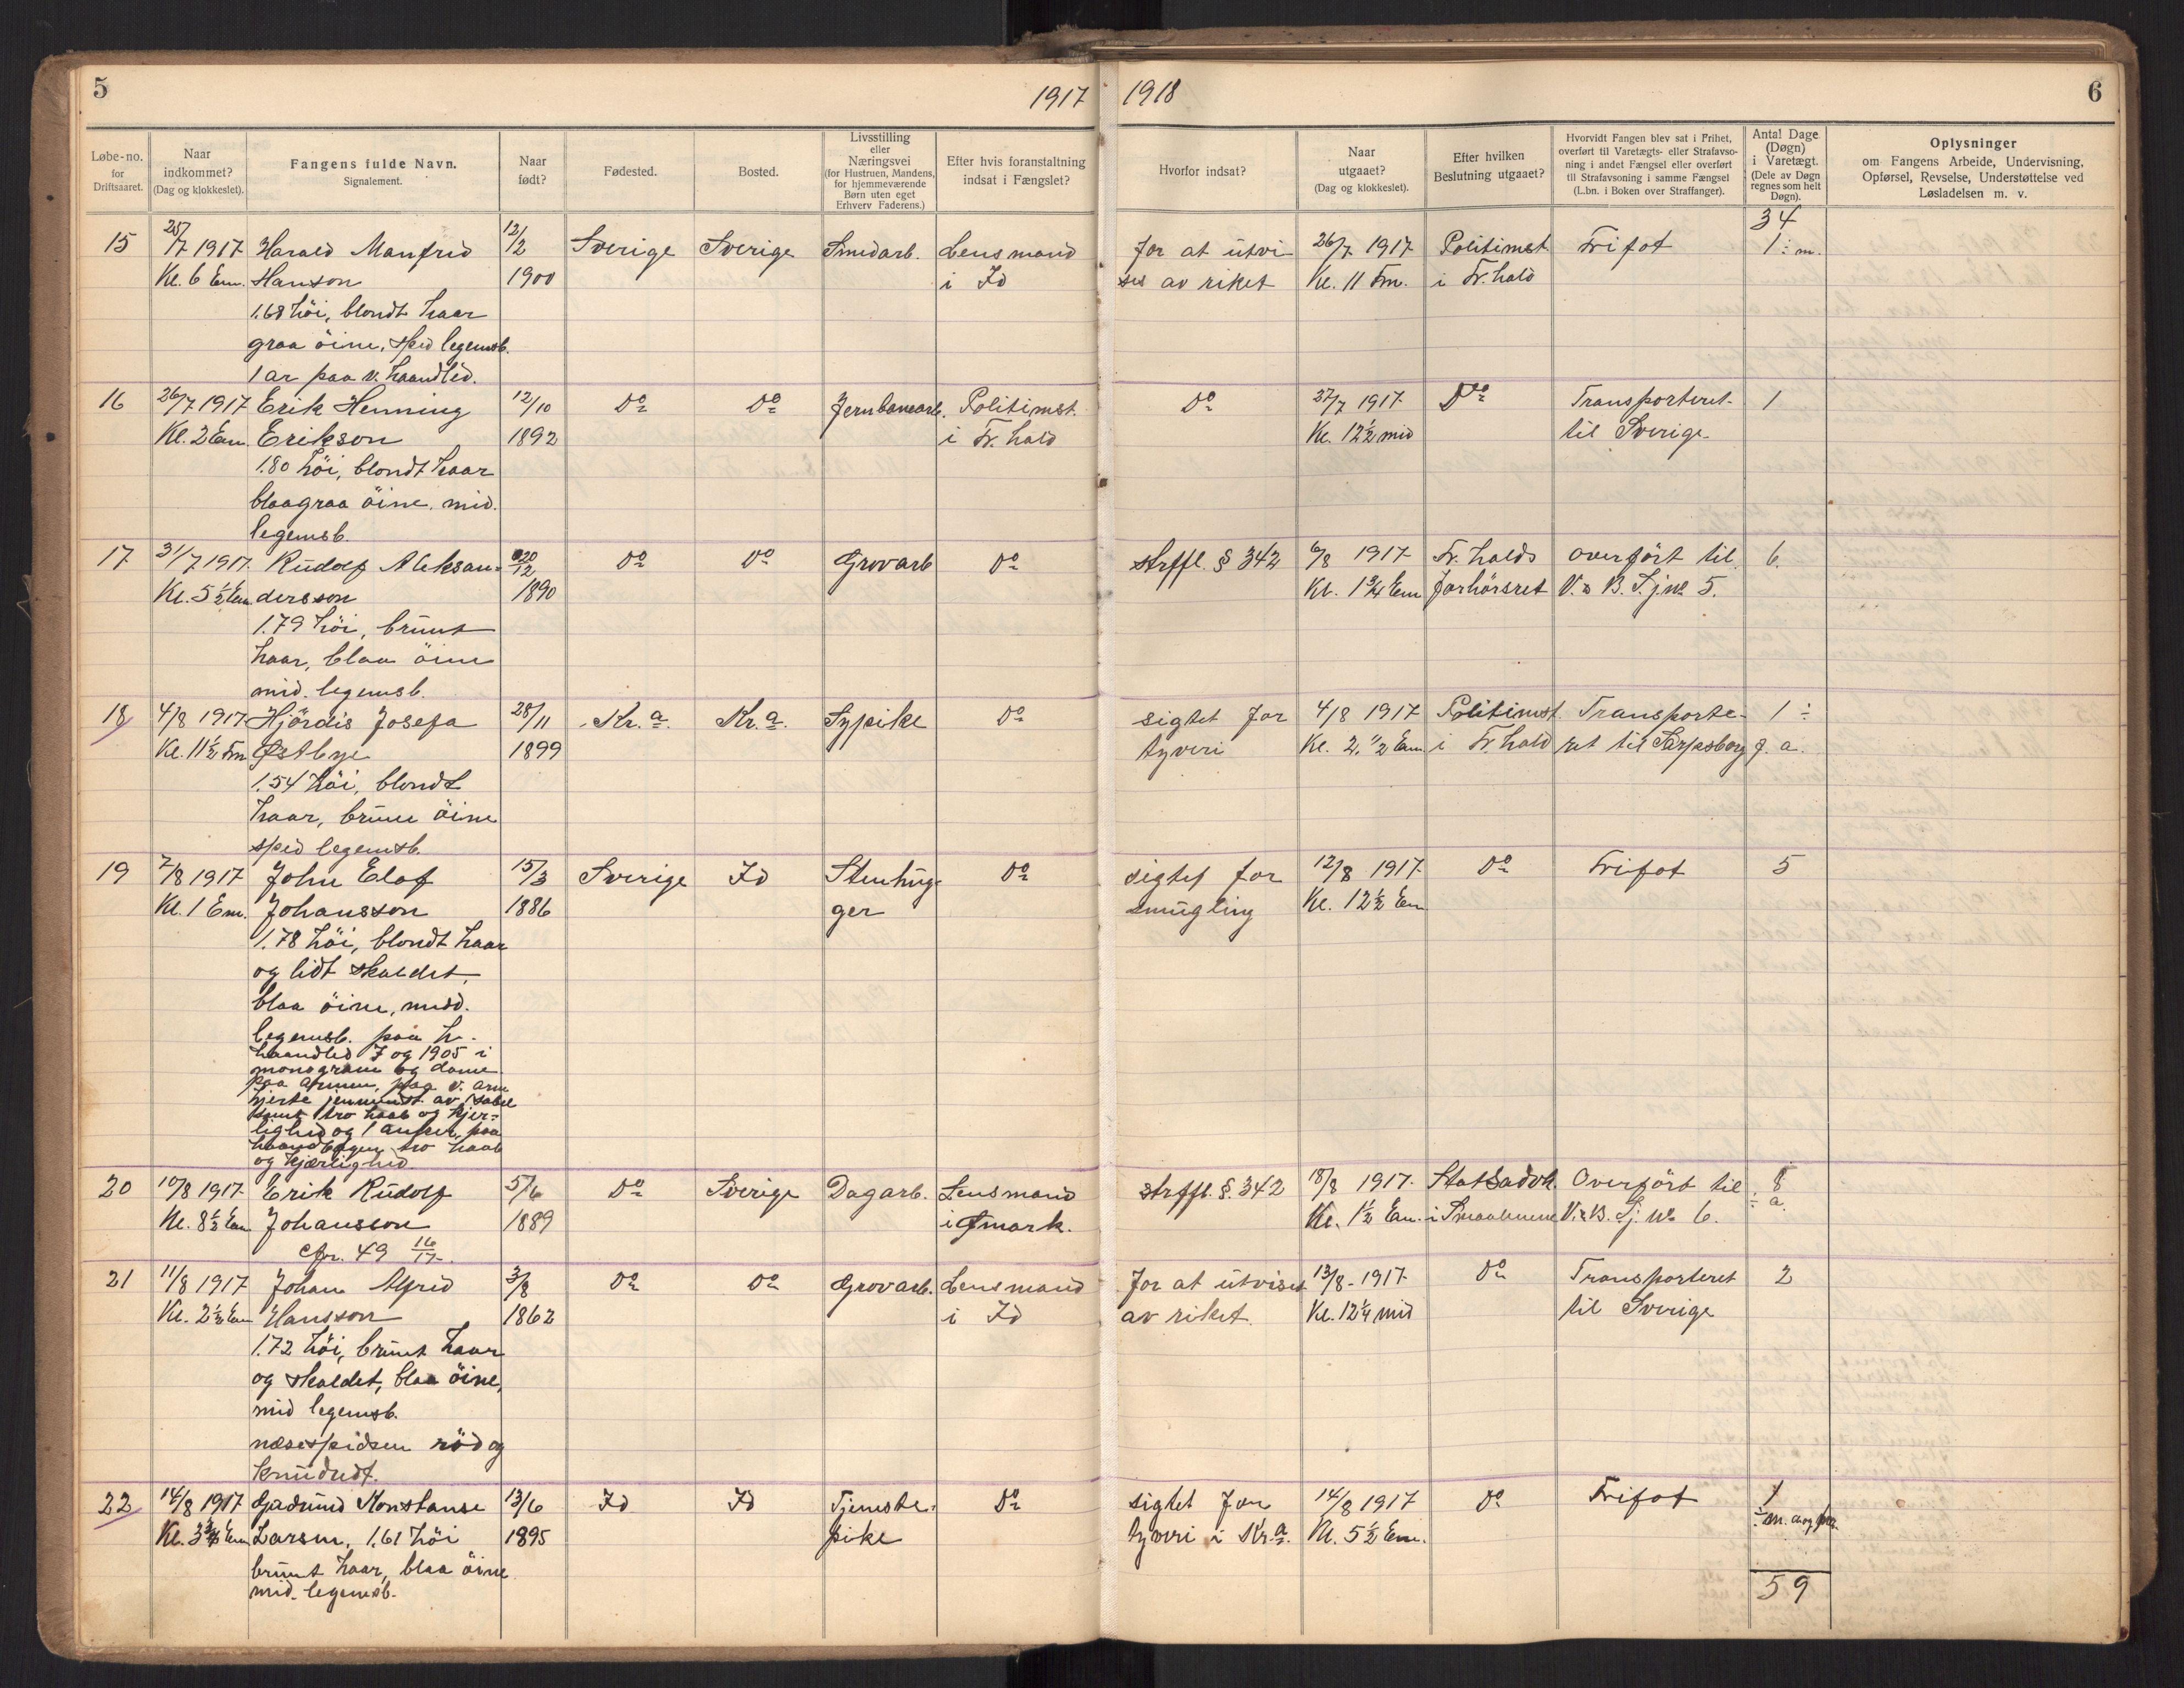 5
1917
1918
6
Løbe-no. for Driftsaaret.
Naar indkommet? (Dag og klokkeslet).
Fangens fulde Navn. Signalement.
Naar født?
Fødested.
Bosted.
Livsstilling eller Næringsvei (for Hustruen, Mandens, for hjemmeværende Børn uten eget Erhverv Faderens.)
Efter hvis foranstaltning indsat i Fængslet?
Hvorfor indsat?
Naar utgaaet? (Dag og klokkeslet).
Efter hvilken Beslutning utgaaet?
Hvorvidt Fangen blev sat i Frihet, overført til Varetægts- eller Strafavsoning i andet Fængsel eller overført til Strafavsoning i samme Fængsel (L.bn. i Boken over Straffanger).
Antal Dage (Døgn) i Varetægt. (Dele av Døgn regnes som helt Døgn).
Oplysninger om Fangens Arbeide, Undervisning, Opførsel, Revselse, Understøttelse ved Løsladelsen m. v.
34
15 25/7 1917 Harald Manfrid 12/2 Sverige Sverige Smedarb. Lensmand for at utvi 26/7 1917 Politimst Frifot 1 ÷ m.
Kl. 6 Em. Hanson 1900 i Id ses av riket Kl. 11 Fm. i Fr.hald
1.68 höi, blondt haar
graa öine, sped legemsb.
1 ar paa v. haandled.
16 26/7 1917 Erik Henning 12/10 Do Do Jernbanearb. Politimst. Do 27/7 1917 Do Transporteret 1
Kl. 2 Em. Erikson 1892 i Fr.hald Kl. 12½ mid til Sverige
1.80 höi, blondt haar
blaagraa öine, mid.
legemsb.
17 31/7 1917 Rudolf Aleksan- 20/12 Do Do Grovarb Do strffl. § 342 6/8 1917 Fr.halds overfört til 6.
Kl. 5½ Em dersson 1890 Kl. 1¾ Em forhörsret V. o B. S. j. No 5.
1.79 höi, brunt
haar, blaa öine
mid. legemsb.
18 4/8 1917 Hjördis Josefa 28/11 Kr.a. Kr.a. Sypike Do sigtet for 4/8 1917 Politimst Transporte- 1 ÷
Kl. 11½ Fm Østbye 1899 tyveri Kl. 2.½ Em i Fr.hald ret til Sarpsborg f. a.
1.54 höi, blondt
haar, brune öine
sped legemsb.
19 7/8 1917 John Elof 15/3 Sverige Id Stenhug- Do sigtet for 12/8 1917 Do Frifot 5
Kl. 1 Em. Johansson 1886 ger smugling Kl. 12½ Em
1.78 höi, blondt haar
og lidt skaldet,
blaa öine, midd.
legemsb. paa h.
haandled J og 1905 i
monogram og dame
paa armen, paa v. arm
hjerte av sabel
samt tro haab og kjer-
lighed og 1 anker, paa
tro haab
og kjærlighed
20 10/8 1917 Erik Rudolf 5/6 Do Sverige Dagarb. Lensmand strffl. § 342 18/8 1917 Statsadvk. Overfört til 8
Kl. 8½ Em Johansson 1889 i Kl. 1½ Em. i Smaalenene V. o B. S. j. No 6. ÷ a.
cfr. 49 16/17.
21 11/8 1917 Johan Alfred 3/8 Do Do Grovarb. Lensmand for at utvises 13/8 - 1917 Do Transporteret 2
Kl. 2½ Em Hansson 1862 i Id av riket. Kl. 12¼ mid til Sverige
1.72 höi, brunt haar
og skaldet, blaa öine,
mid legemsb.
næsespidsen röd og
knudret.
22 14/8 1917 Gudrund Konstanse 13/6 Id Id Tjeneste- Do sigtet for 14/8 1917 Do Frifot 1
Kl. 3¾ Em Larsen, 1.61 höi 1895 pike tyveri i Kr.a. Kl. 5½ Em. ÷ m.
brunt haar, blaa öine
mid. legemsb.
59